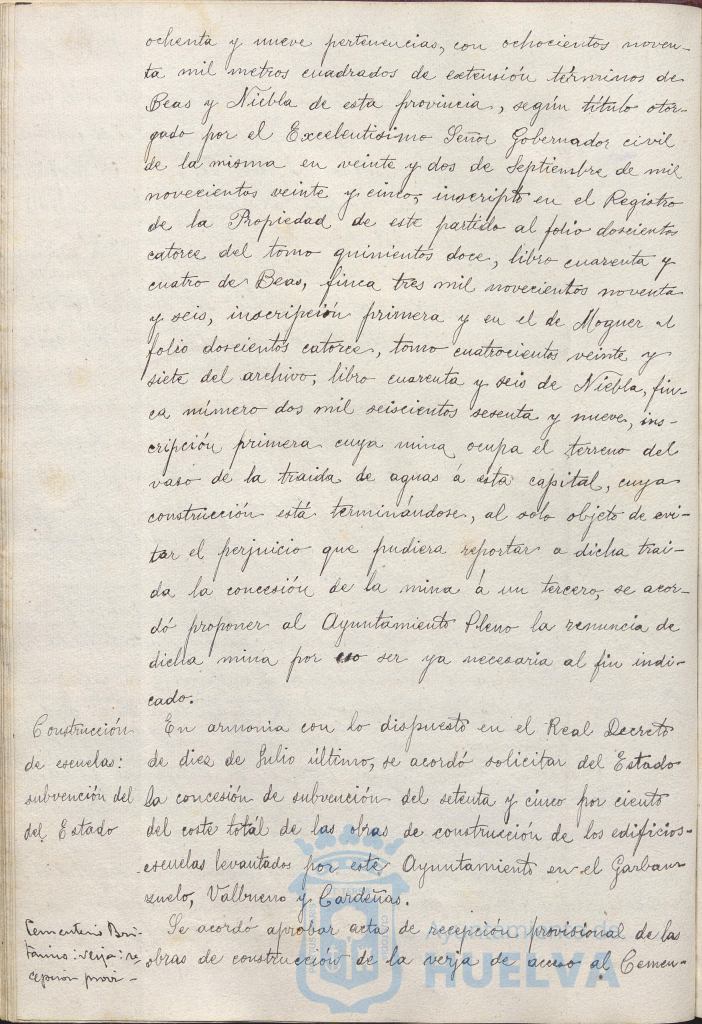 ochenta y nueve pertenencias, con ochocientos noven-
ta mil metros cuadrados de extensión términos de
Beas y Niebla de esta provincia, según título otor-
gado por el Excelentisimo Señor Gobernador civil
de la misma en veinte y dos de Septiembre de mil
novecientos veinte y cinco, inscripto en el Registro
de la Propiedad de este partido al folio doscientos
catorce del tomo quinientos doce, libro cuarenta y
cuatro de Beas, finca tres mil novecientos noventa
y seis, inscripción primera y en el de Moguer al
folio doscientos catorce, tomo cuatrocientos veinte y
siete del archivo, libro cuarenta y seis de Niebla, fin-
ca número dos mil seiscientos sesenta y nueve, ins-
cripción primera cuya mina ocupa el terreno del
vaso de la traida de aguas á esta capital, cuya
construcción está terminándose, al solo objeto de evi-
tar el perjuicio que pudiera reportar a dicha trai-
da la concesión de la mina á un tercero, se acor-
dó proponer al Ayuntamiento Pleno la renuncia de
dicha mina por no ser ya necesaria al fin indi-
cado.
Construcción
de escuelas:
subvención del
del Estado
En armonia con lo dispuesto en el Real Decreto
de diez de Julio último, se acordó solicitar del Estado
la concesión de subvención del setenta y cinco por ciento
del coste totál de las obras de construcción de los edificios-
escuelas levantados por este Ayuntamiento en el Garban-
zuelo, Valbueno y Cardeñas.
Cementerio Bri-
tanico: verja: re-
cepcion provi-
Se acordó aprobar acta de recepción provisional de las
obras de construcción de la verja de acceso al Cemen-
Ayuntamiento de
HUELVA